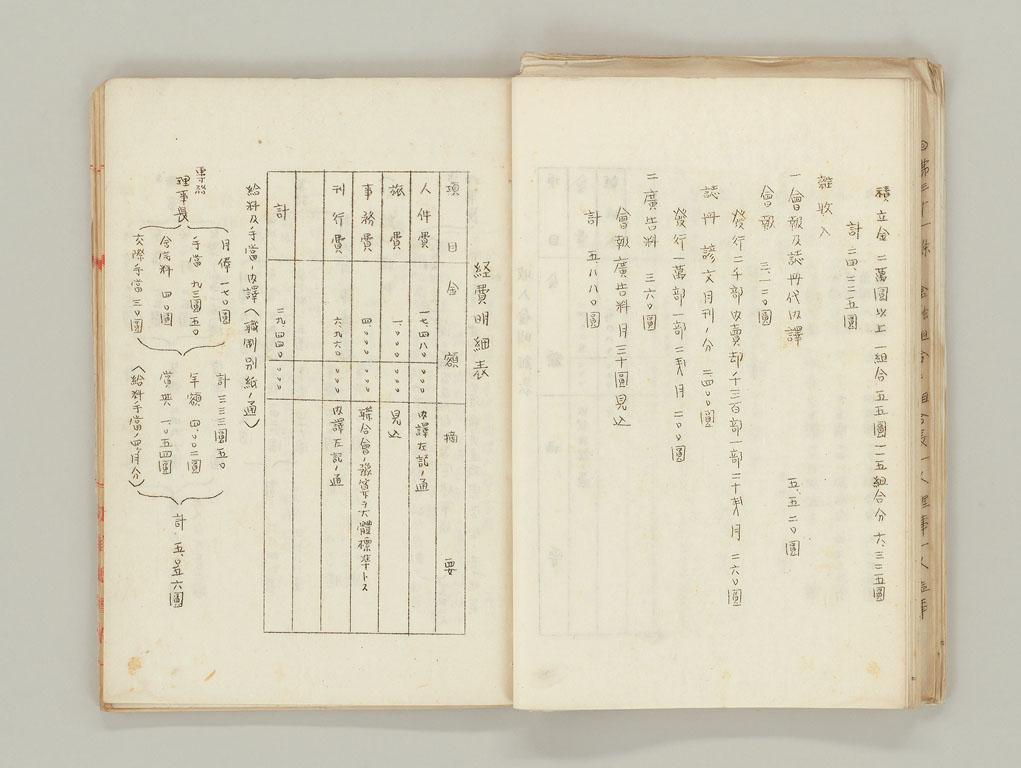 積立金 二萬圓以上一組合五五圓一一五組合分 六、三二五圓
計 二四、三二五圓
雜收入
一 會報及誌冊代內譯 五、五二〇圓
會報 三、一二〇圓
發行二千部內賣却千三百部一部二十錢月 二六〇圓
誌冊 諺文月刊ノ分 二、四〇〇圓
發行一萬部一部二錢月 二〇〇圓
二 廣告料 三六〇圓
會報廣告料月三十圓見込
計 五、八八〇圓
経費明細表
項目 金額 摘要
人件費 一七、四八〇 〇〇〇 內譯左記ノ通
旅費 一、〇〇〇 〇〇〇 見込
事務費 四、〇〇〇 〇〇〇 聯合會ノ豫算ヲ大體標準トス
刊行費 六、九六〇 〇〇〇 內譯左記ノ通
計 二九、四四〇 〇〇〇
給料及手當ノ內譯(職制別紙ノ通)
專務
理事長
月俸 一七〇圓
手當 九三圓五〇
舍宅料 四〇圓
交際手當 三〇圓
計 三三三圓五〇
年額 四、〇〇二圓
賞與 一、〇五四圓
(給料手當ノ四ヶ月分)
計 五、〇五六圓